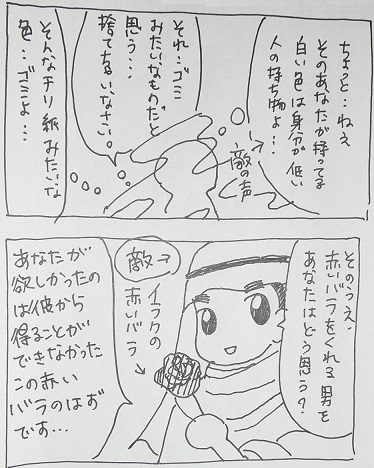 ちょっと…ねえ
そのあなたが持ってる
白い色は身分が低い
人の持ち物よ…
→敵の声
それ…ゴミ
みたいなものだと
思う…
捨てちゃいなさい
そんなチリ紙みたいな
色…ゴミよ…
そのうえ、
赤いバラをくれる男を
あなたはどう思う?
敵→
イラクの
赤いバラ
あなたが
欲しかったの
は彼から
得ることが
できなかった
この赤い
バラのはず
です…